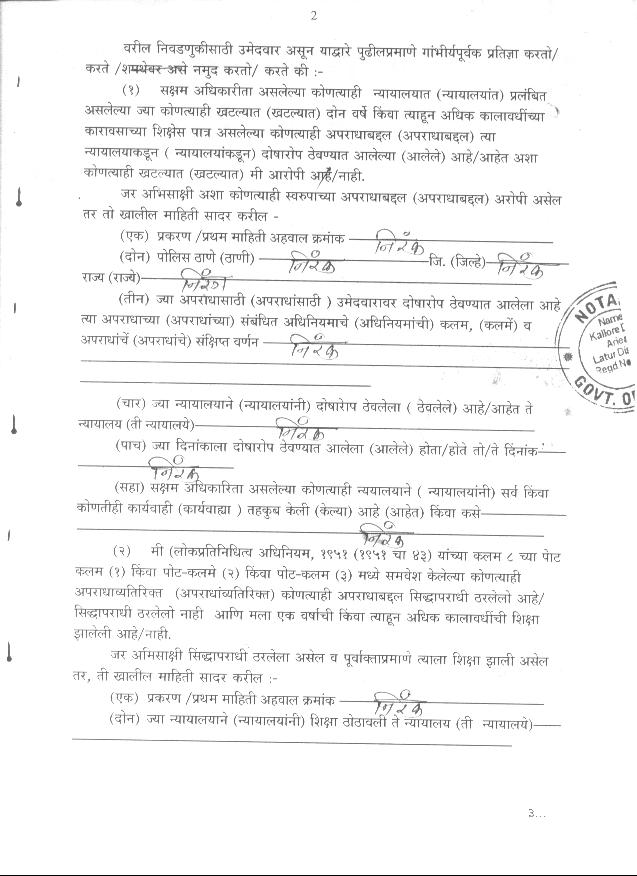 2
वरील निवडणुकीसाठी उमेदवार असून याद्वारे पुढीलप्रमाणे गांभीर्यपूर्वक प्रतिज्ञा करतो/
करते /शपथेवर असे नमुद करतो/ करते की :-
(१) सक्षम अधिकारीता असलेल्या कोणत्याही न्यायालयात (न्यायालयांत) प्रलंबित
असलेल्या ज्या कोणत्याही खटल्यात (खटल्यात) दोन वर्षे किंवा त्याहून अधिक कालावधीच्या
कारावसाच्या शिक्षेस पात्र असलेल्या कोणत्याही अपराधाबद्दल (अपराधाबद्दल) त्या
न्यायालयाकडून ( न्यायालयांकडून) दोषारोप ठेवण्यात आलेल्या (आलेले) आहे/आहेत अशा
कोणत्याही खटल्यात (खटल्यात) मी आरोपी आहे/नाही.
जर अभिसाक्षी अशा कोणत्याही स्वरुपाच्या अपराधाबद्दल (अपराधाबद्दल) अरोपी असेल
तर तो खालील माहिती सादर करील -
(एक) प्रकरण /प्रथम माहिती अहवाल क्रमांक निरंक
(दोन) पोलिस ठाणे (ठाणी) निरंक जि. (जिल्हे) निरंक
राज्य (राज्ये) निरंक
(तीन) ज्या अपराधासाठी (अपराधांसाठी ) उमेदवारावर दोषारोप ठेवण्यात आलेला आहे
त्या अपराधाच्या (अपराधांच्या) संबंधित अधिनियमाचे (अधिनियमांची) कलम, (कलमें) व
अपराधांचें (अपराधांचे) संक्षिप्त वर्णन निरंक
(चार) ज्या न्यायालयाने (न्यायालयांनी) दोषारोप ठेवलेला ( ठेवलेले) आहे/आहेत ते
न्यायालय (ती न्यायालये) निरंक
(पाच) ज्या दिनांकाला दोषारोप ठेवण्यात आलेला (आलेले) होता/होते तो/ते दिंनांक
निरंक
(सहा) सक्षम अधिकारिता असलेल्या कोणत्याही न्ययालयाने ( न्यायालयांनी) सर्व किंवा
कोणतीही कार्यवाही (कार्यवाह्या ) तहकुब केली (केल्या) आहे (आहेत) किंवा कसे
निरंक
(२) मी (लोकप्रतिनिधित्व अधिनियम, १९५१ (१९५१ चा ४३) यांच्या कलम ८ च्या पोट
कलम (१) किंवा पोट-कलमे (२) किंवा पोट-कलम (३) मध्ये समवेश केलेल्या कोणत्याही
अपराधाव्यतिरिक्त (अपराधांव्यतिरिक्त) कोणत्याही अपराधाबद्दल सिद्धापराधी ठरलेलो आहे/
सिद्धापराधी ठरलेलो नाही आणि मला एक वर्षाची किंवा त्याहून अधिक कालावधीची शिक्षा
झालेली आहे/नाही.
जर अभिसाक्षी सिद्धापराधी ठरलेला असेल व पूर्वाक्ताप्रमाणे त्याला शिक्षा झाली असेल
तर, ती खालील माहिती सादर करील :-
(एक) प्रकरण /प्रथम माहिती अहवाल क्रमांक निरंक
(दोन) ज्या न्यायालयाने (न्यायालयांनी) शिक्षा ठोठावली ते न्यायालय (ती न्यायालये)
3...
NOTA
Name
Kallore D
Latur Dis
Regd No
GOVT. O